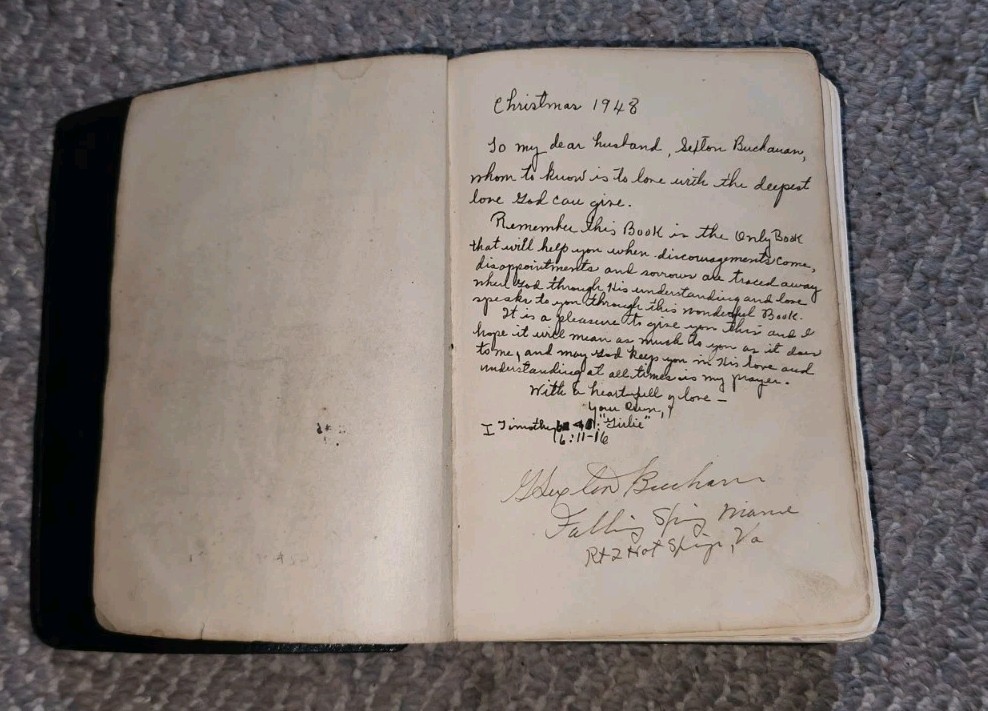 Christmas 1948
To my dear husband, Sexton Buchanan,
whom to know is to love with the deepest
love God can give.
Remember this Book is the Only Book
that will help you when discouragements come,
disappointments and sorrows are traced away
when God through His understanding and love
speaks to you through this wonderful Book.
It is a pleasure to give you this and I
hope it will mean as much to you as it does
to me, and may God keep you in His love and
understanding at all times is my prayer.
With a heart full of love —
Your Own,
I Timothy "Girlie"
6:11-16
Sexton Buchanan
Falling Spring Manse
Rt 2 Hot Springs, Va